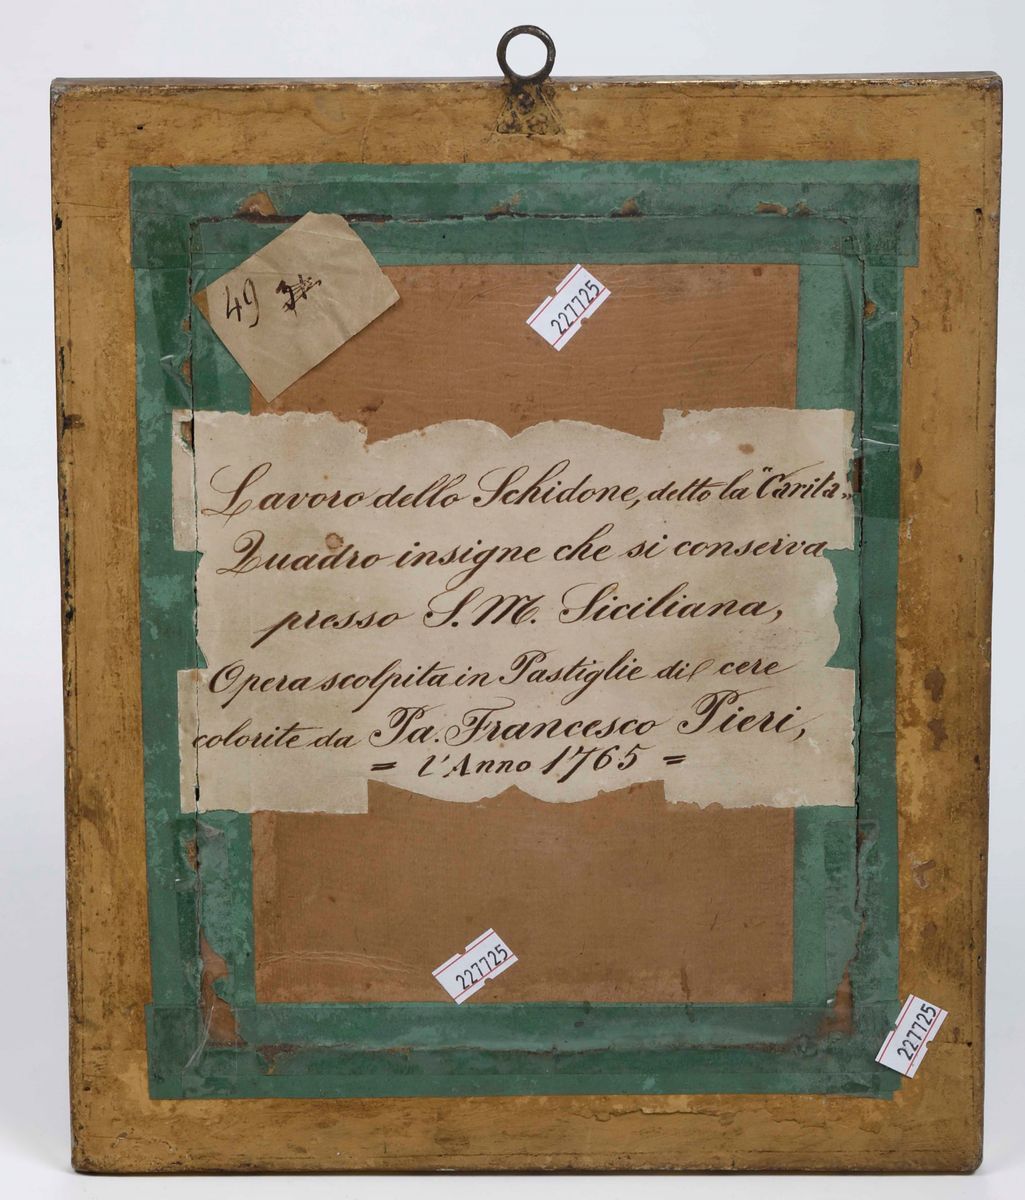 49
227725
Lavoro dello Schidone, detto la "Carita„
Quadro insigne che si conserva
presso S. M. Siciliana,
Opera scolpita in Pastiglie di cere
colorite da Pa. Francesco Pieri,
= l'Anno 1765 =
227725
227725